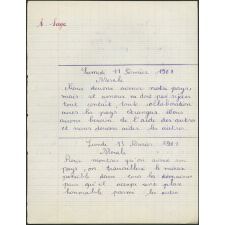 Samedi 11 Février 1961
Morale
Nous devons aimer notre pays,
mais cet amour ne doit pas rejeter
tout contact toute collaboration
avec les pays étrangers. Nous
avons besoin de l'aide des autres
et nous devons aider les autres.
Lundi 13 Février 1961
Morale
Pour montrer qu'on aime son
pays, on travaillera le mieux
possible dans tous les domaines
pour qu'il occupe une place
honorable parmi les autres